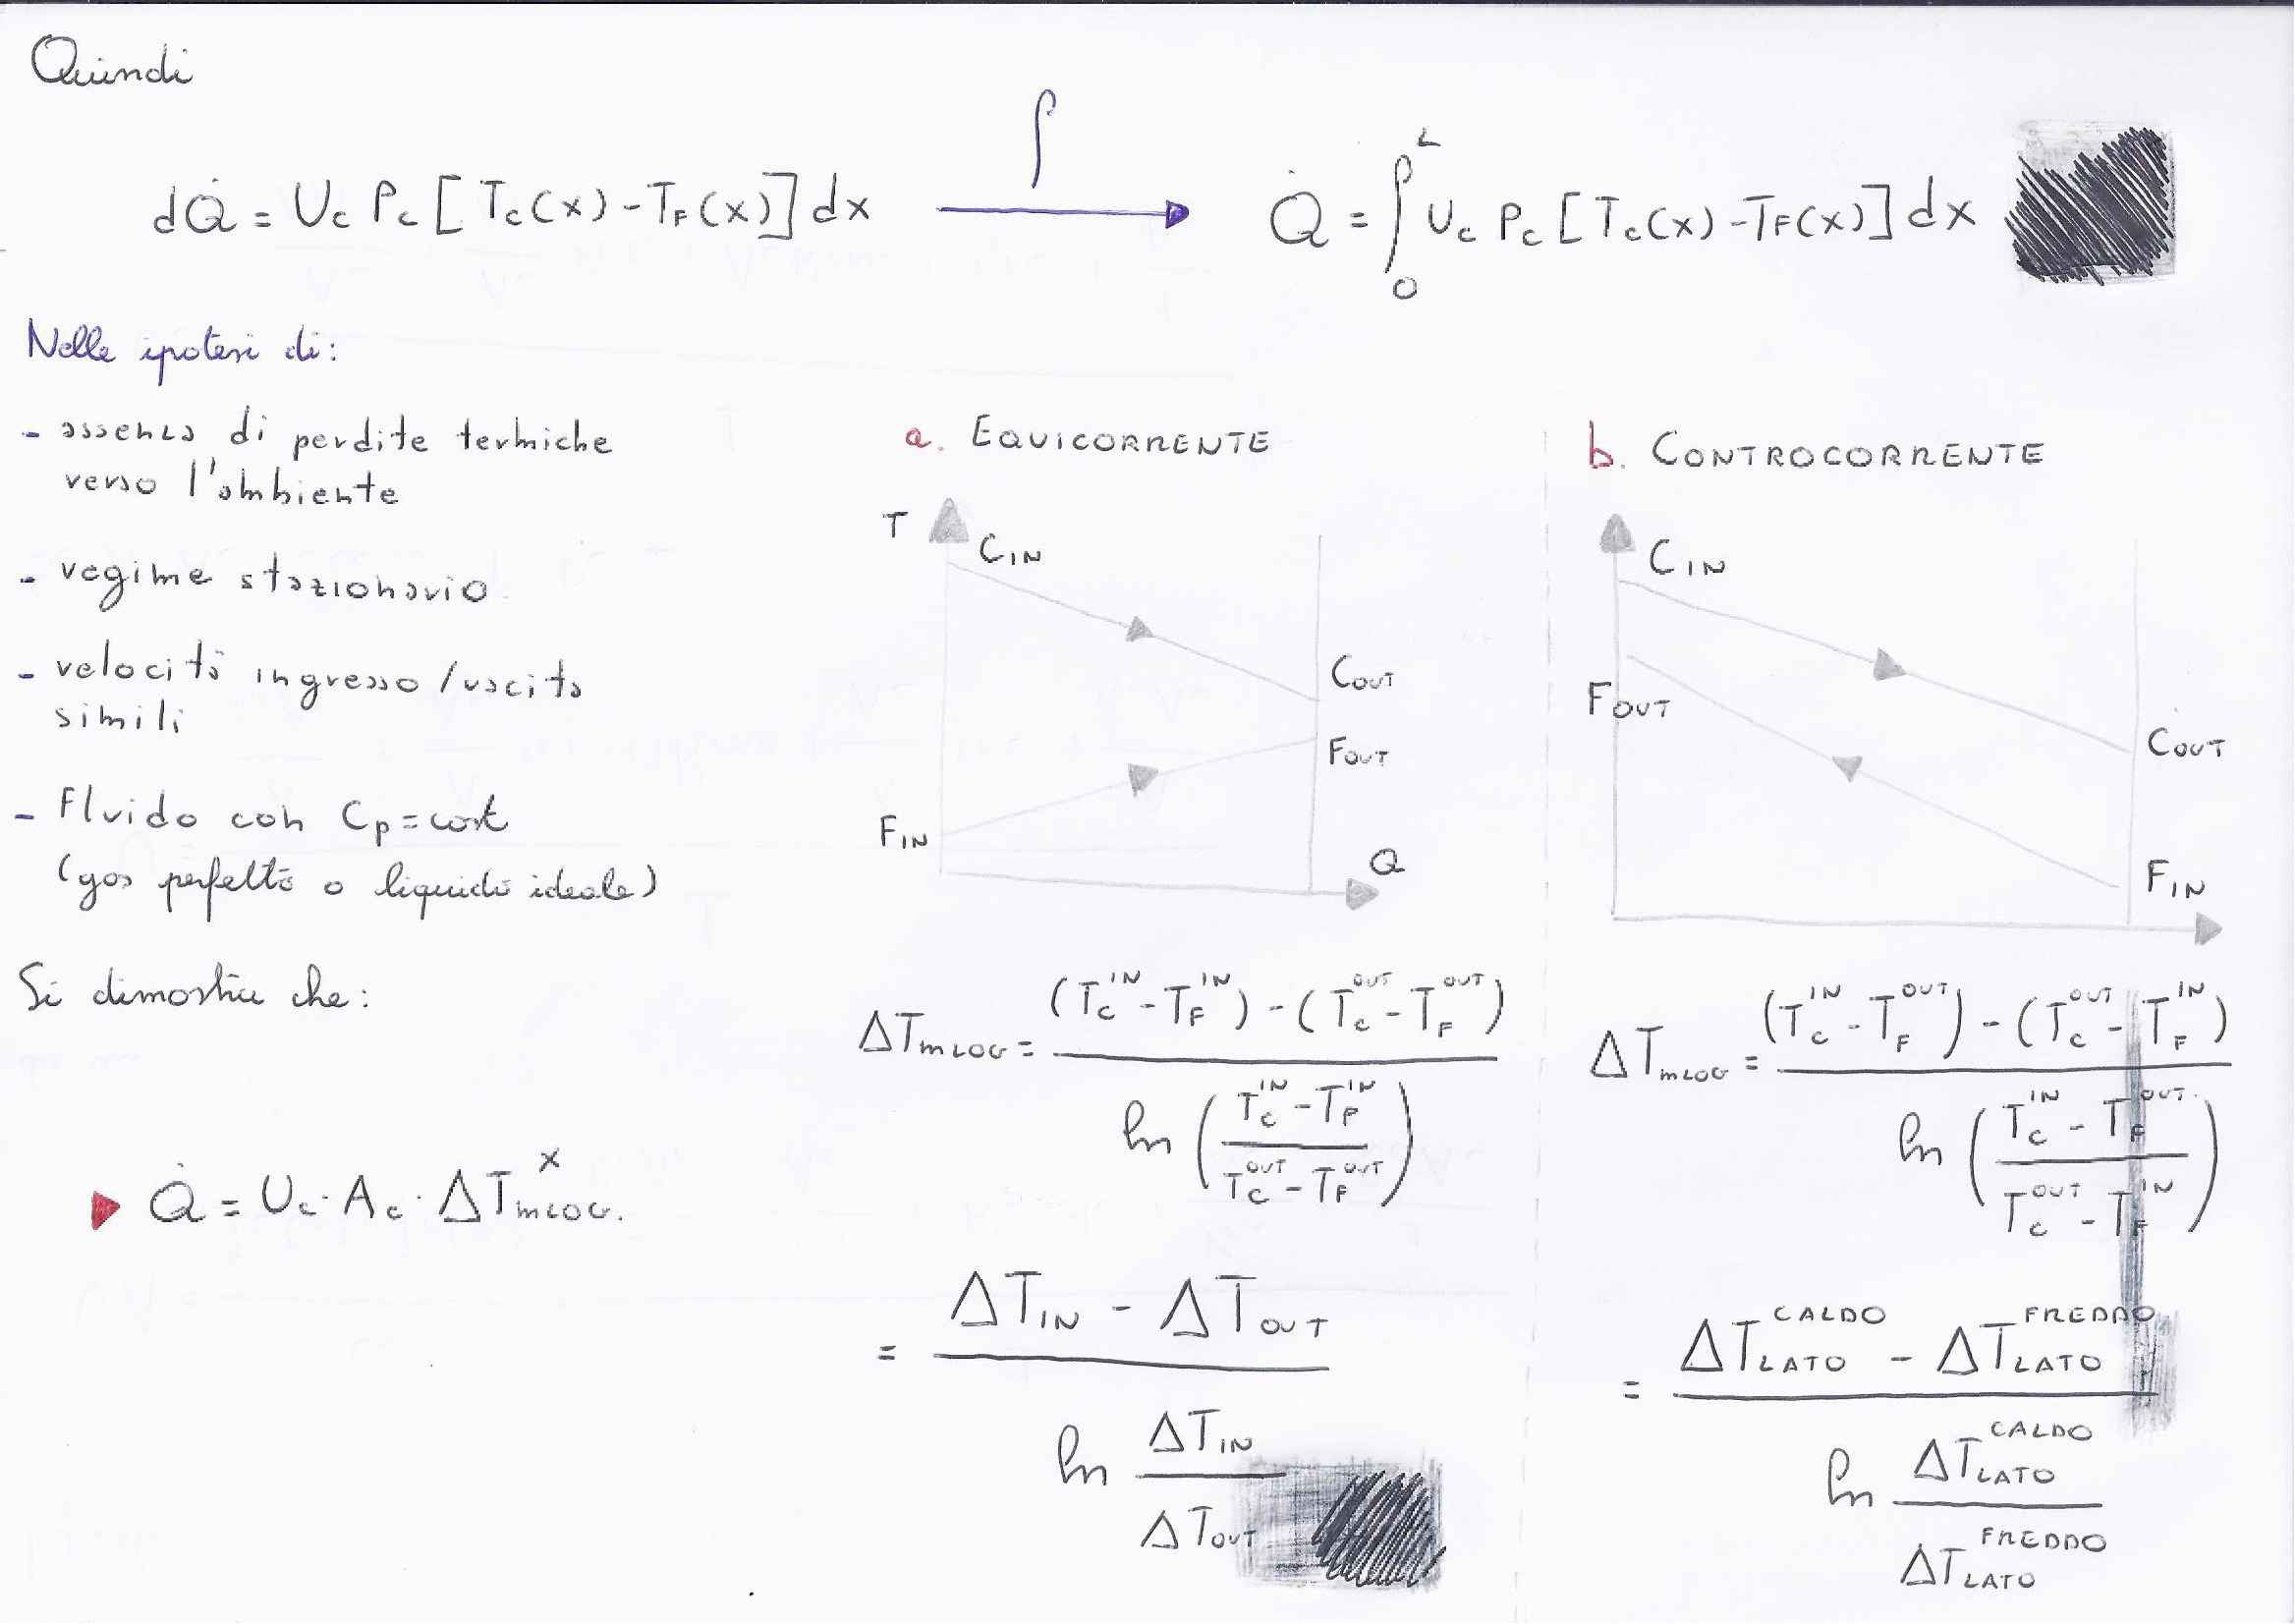 Quindi
dQ̇ = Uc Pc [Tc(x) - TF(x)] dx ∫ Q̇ = ∫₀ᴸ Uc Pc [Tc(x) - TF(x)] dx
Nelle ipotesi di:
- assenza di perdite termiche
verso l'ambiente
- regime stazionario
- velocità ingresso/uscita
simili
- Fluido con Cp = cost
(gas perfetto o liquido ideale)
Si dimostra che:
Q̇ = Uc · Ac · ΔT^x mLOG.
a. EQUICORRENTE
T
C IN
C OUT
F OUT
F IN
Q
ΔT mLOG = ((Tc^IN - TF^IN) - (Tc^OUT - TF^OUT)) / ln ((Tc^IN - TF^IN) / (Tc^OUT - TF^OUT))
= (ΔT IN - ΔT OUT) / ln (ΔT IN / ΔT OUT)
b. CONTROCORRENTE
C IN
F OUT
C OUT
F IN
ΔT mLOG = ((Tc^IN - TF^OUT) - (Tc^OUT - TF^IN)) / ln ((Tc^IN - TF^OUT) / (Tc^OUT - TF^IN))
= (ΔT LATO^CALDO - ΔT LATO^FREDDO) / ln (ΔT LATO^CALDO / ΔT LATO^FREDDO)